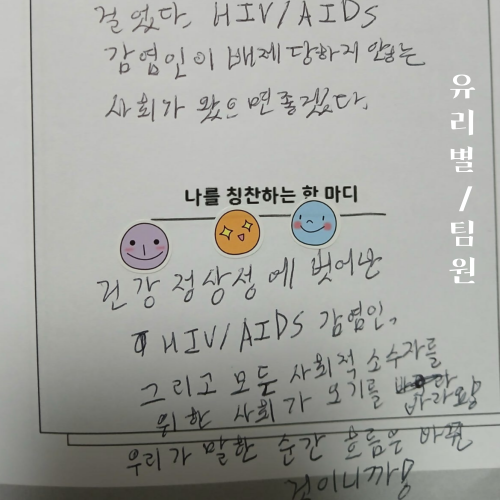 걸었다. HIV/AIDS
감염인이 배제 당하지 않는
사회가 왔으면 좋겠다.
나를 칭찬하는 한 마디
건강 정상성에 벗어난
HIV/AIDS 감염인,
그리고 모든 사회적 소수자를
위한 사회가 오기를 바라왕
우리가 말한 순간 흐름은 바뀐
것이니까!
유리별/팀원